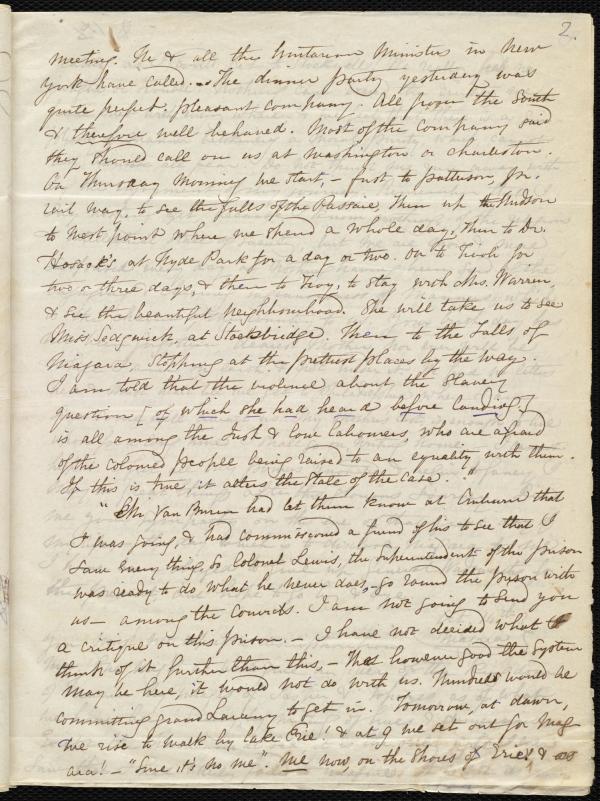 2.
meeting. He & all the Unitarian Ministers in New
York have called. The dinner party yesterday was
quite perfect. pleasant company. All from the South
& therefore well behaved. Most of the company said
they should call on us at Washington or Charleston.
On Thursday Morning we start, – first to Patterson, by
rail way, to see the falls of the Passaic, then up the Hudson
to West point where we spend a whole day, then to Dr.
Hosack's at Hyde Park for a day or two. On to for
two or three days, & then to Troy, to stay with Mrs. Warren,
& see the beautiful neighbourhood. She will take us to see
Miss Sedgwick, at Stockbridge. Then to the Falls of
Niagara, stopping at the prettiest places by the way.
I am told that the violence about the Slavery
question [of which she had heard before landing]
is all among the Irish & low labourers, who are afraid
of the coloured people being raised to an equality with them.
If this is true, it alters the State of the case."
"Mr Van Buren had let them know at Auburn that
I was going, & had commissioned a friend of his to see that I
saw every thing, so Colonel Lewis, the superintendent of the prison
was ready to do, what he never does, go round the prison with
us – among the convicts. I am not going to send you
a critique on this prison. – I have not decided what to
think of it further than this, – that however good the system
may be here, it would not do with us. Hundreds would be
committing grand Larceny to get in. Tomorrow, at dawn,
we rise to walk by lake Erie! & at 9 we set out for Niag
ara! – "Sure it's no me". Me now, on the shores of Erie! &